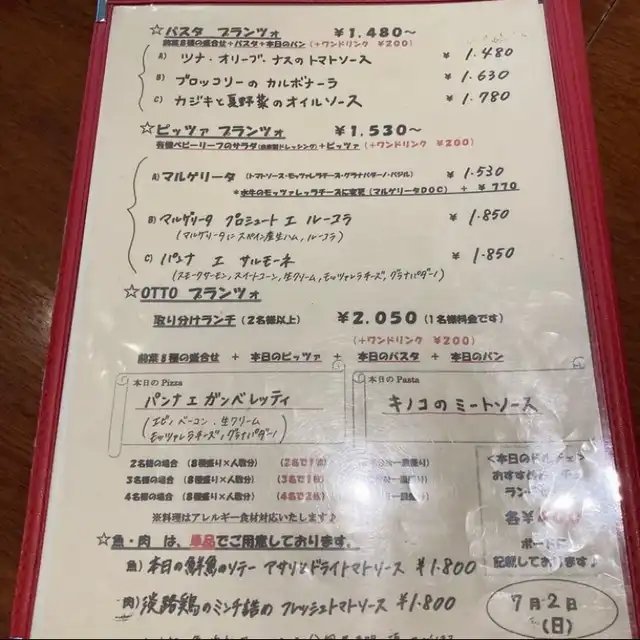 ☆パスタ プランツォ ￥1,480～
前菜8種の盛合せ+パスタ+本日のパン (+ワンドリンク ￥200)
A) ツナ・オリーブ・ナスのトマトソース ￥1.480
B) ブロッコリーの カルボナーラ ￥1.630
C) カジキと夏野菜のオイルソース ￥1.780
☆ピッツァ プランツォ ￥1,530～
有機ベビーリーフのサラダ(自家製ドレッシング)+ピッツァ (+ワンドリンク ￥200)
A) マルゲリータ (トマトソース・モッツァレラチーズ・グラナパダーノ・バジル) ￥1.530
*水牛のモッツァレッラチーズに変更(マルゲリータDOC) + ￥770
B) マルゲリータ プロシュート エ ルーコラ ￥1.850
(マルゲリータに スペイン産生ハム,ルーコラ)
C) パンナ エ サルモーネ ￥1.850
(スモークサーモン,スイートコーン,生クリーム,モッツァレラチーズ,グラナパダーノ)
☆OTTO プランツォ
取り分けランチ(2名様以上) ￥2,050(1名様料金です)
(+ワンドリンク ￥200)
前菜8種の盛合せ + 本日のピッツァ + 本日のパスタ + 本日のパン
本日の Pizza
パンナ エ ガンベレッティ
(エビ,ベーコン,生クリーム
モッツァレラチーズ,グラナパダーノ)
本日の Pasta
キノコの ミートソース
2名様の場合 (8種盛り×人数分) (2名で1
3名様の場合 (8種盛り×人数分) (3名で1
4名様の場合 (8種盛り×人数分) (4名で2
※料理はアレルギー食材対応いたします♪
<本日のドルチェ>
おすすめ
ラン
各￥
ボードに
記載しております♪
☆魚・肉 は、単品でご用意しております。
魚) 本日の鮮魚のソテー アサリとドライトマトソース ￥1.800
肉) 淡路鶏のミンチ詰め フレッシュトマトソース ￥1.800
7月2日
(日)